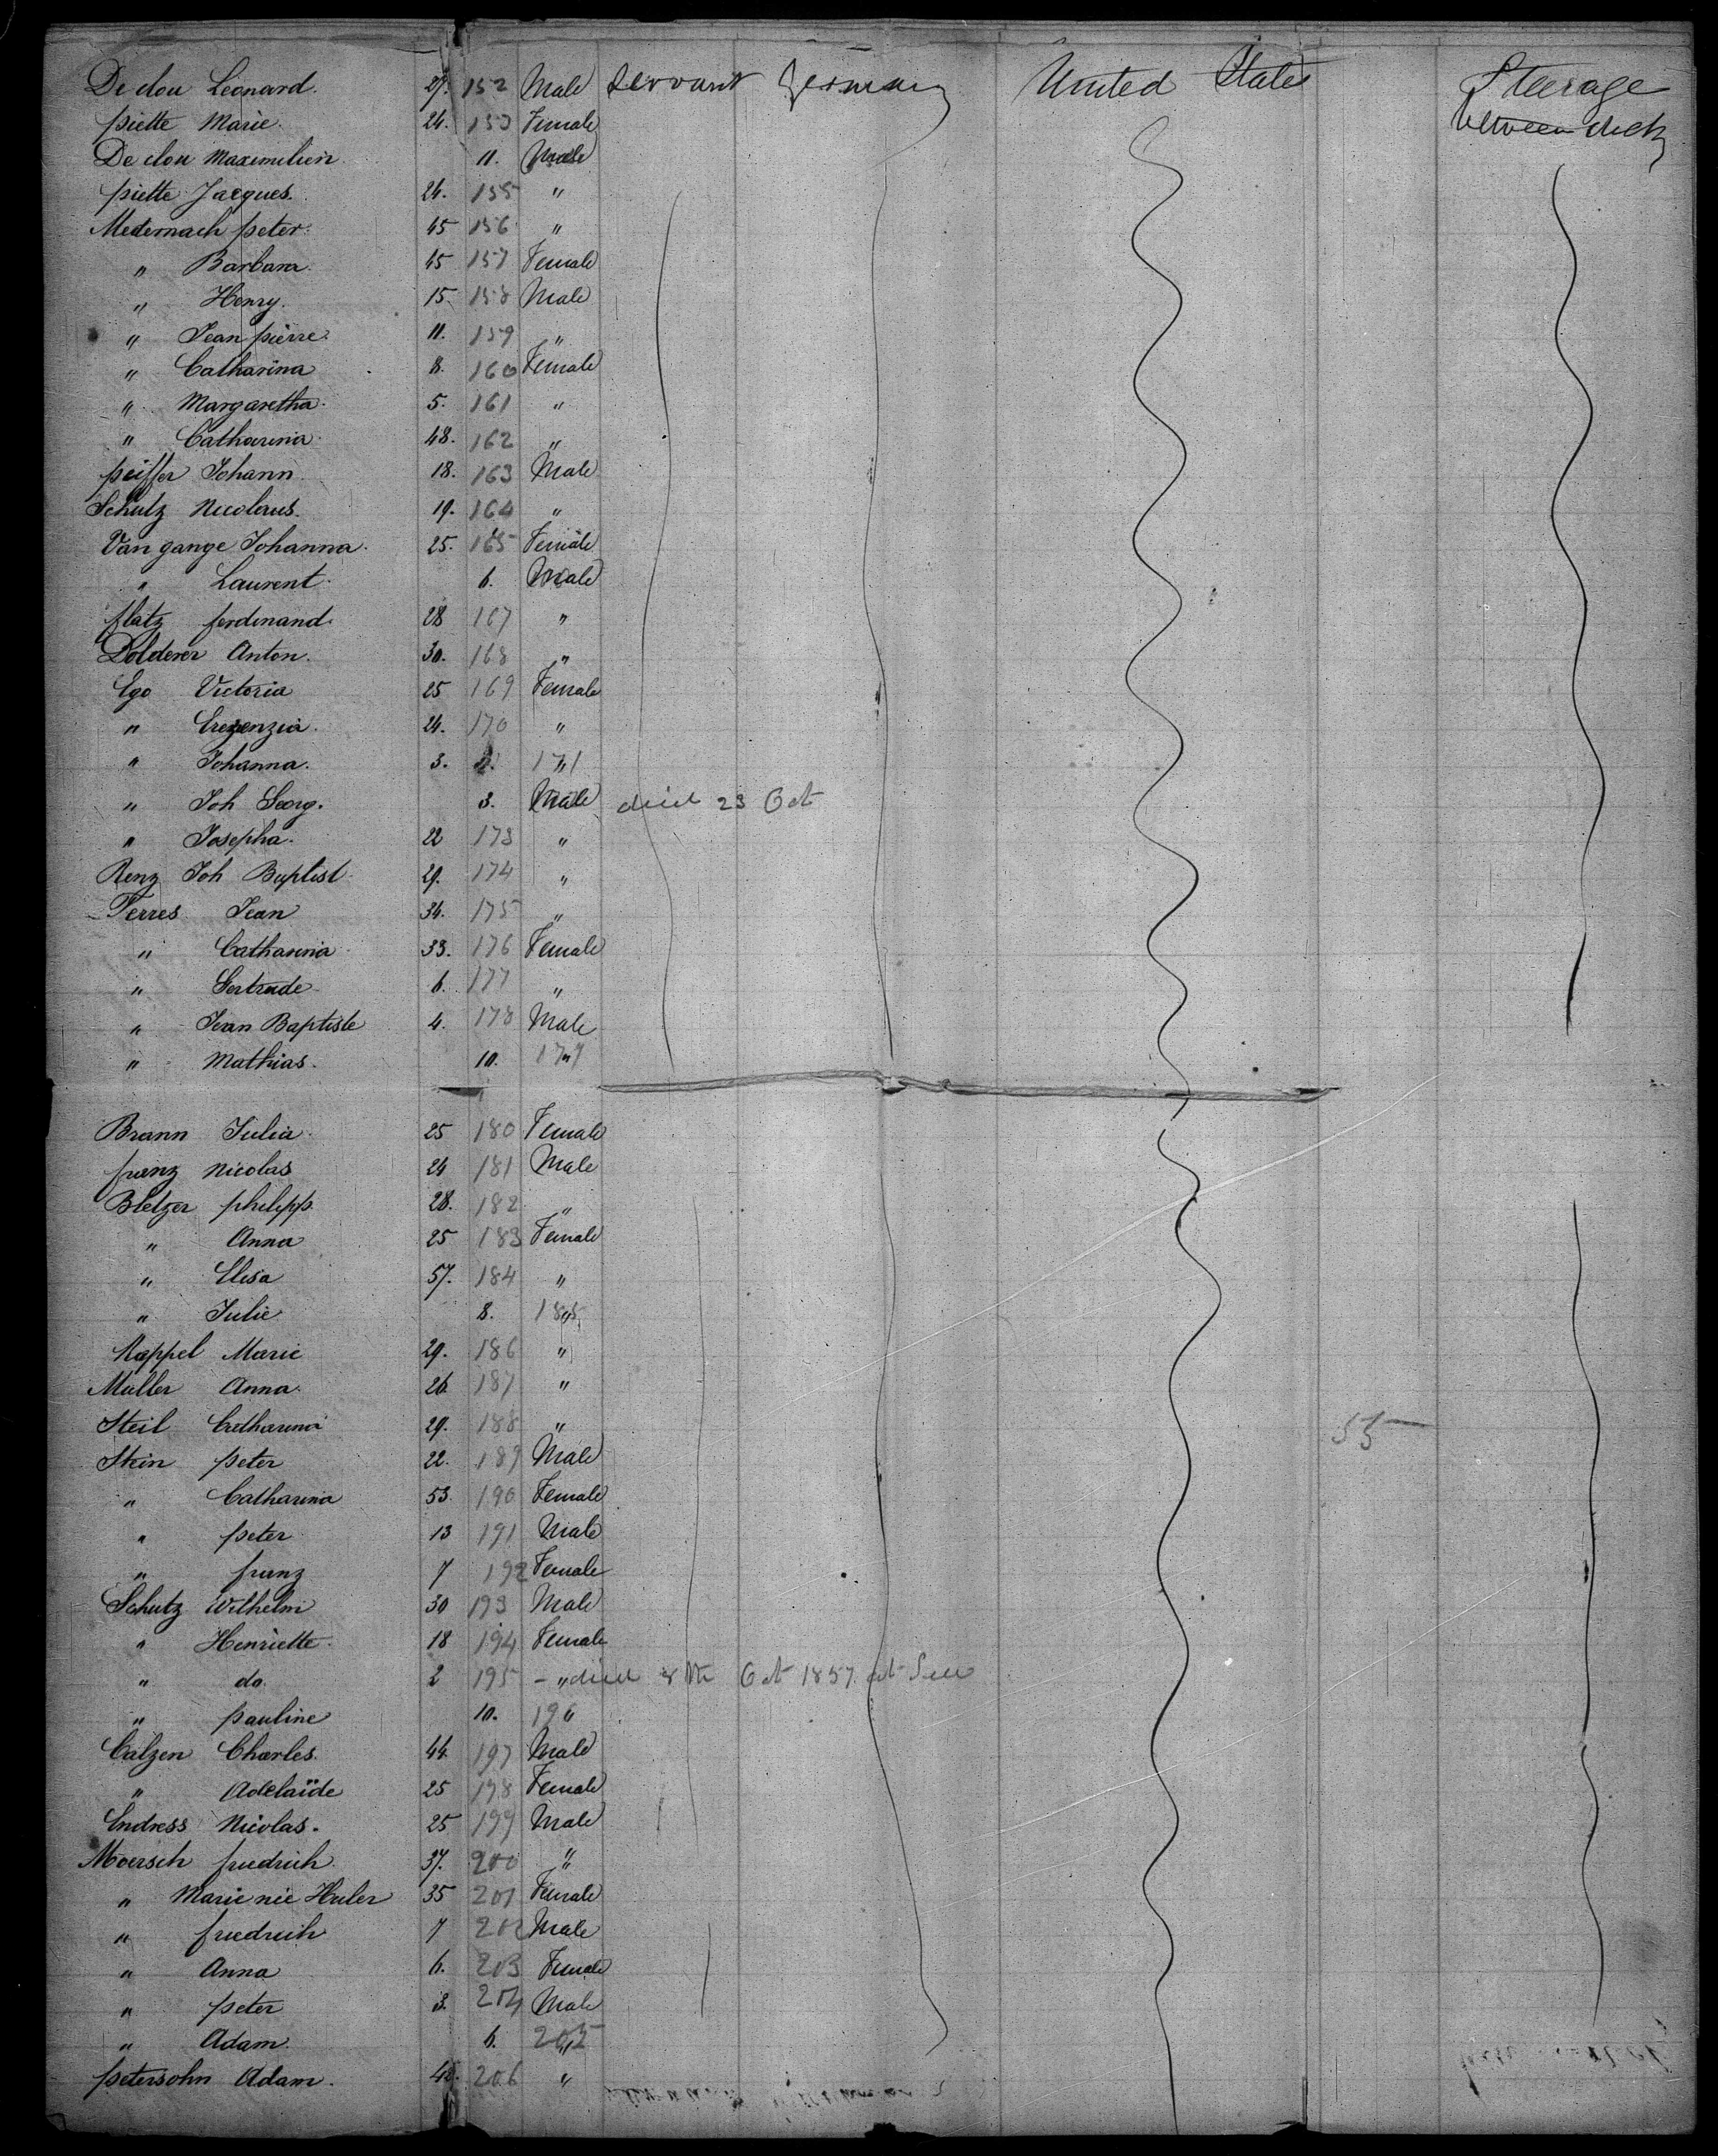 De clou Léonard. 27. 152 Male Servant Germany United States Steerage
piette Marie. 24. 153 Female between deck
De clou Maximilien. 11. Male
piette Jacques. 24. 155 "
Medernach peter. 45 156 "
" Barbara. 45 157 Female
" Henry. 15. 158 Male
" Jean pierre. 11. 159 "
" Catharina 8. 160 Female
" Margaretha. 5. 161 "
" Catharina. 48. 162 "
peiffer Johann 18. 163 Male
Schutz Nicolaus. 19. 164 "
Van gange Johanna. 25. 165 Female
" Laurent. 6. Male
flatz ferdinand. 28 167 "
Dolderer Anton. 30. 168 "
Ego Victoria 25 169 Female
" Crezenzia. 24. 170 "
" Johanna. 3. 171 "
" Joh Georg. 3. Male died 23 Oct
" Josepha. 22 173 "
Renz Joh Baptist. 29. 174 "
Terres Jean 34. 175 "
" Catharina 33. 176 Female
" Gertrude 6. 177 "
" Jean Baptiste 4. 178 Male
" Mathias. 10. 179 "
Brann Julia. 25 180 Female
franz Nicolas 24 181 Male
Bletzer philipp. 28. 182 "
" Anna 25 183 Female
" Elisa 57. 184 "
" Julie 8. 185 "
Kappel Marie 29. 186 "
Muller Anna. 26 187 "
Steil Catharina 29. 188 "
Stein peter 22. 189 Male
" Catharina 53. 190 Female
" peter 13 191 Male
" franz 7 192 Female
Schutz Wilhelm 30 193 Male
" Henriette. 18 194 Female
" do. 2 195 - " died 8th Oct 1857 at Sea
" pauline 10. 196
Calzen Charles. 44. 197 Male
" Adelaïde 25 198 Female
Endress Nicolas. 25 199 Male
Moersch friedrich. 37. 200 "
" Marie née Huler 35 201 Female
" friedrich 7 202 Male
" Anna 6. 203 Female
" peter 3. 204 Male
" Adam. 6. 205 "
petersohn Adam. 48. 206 "